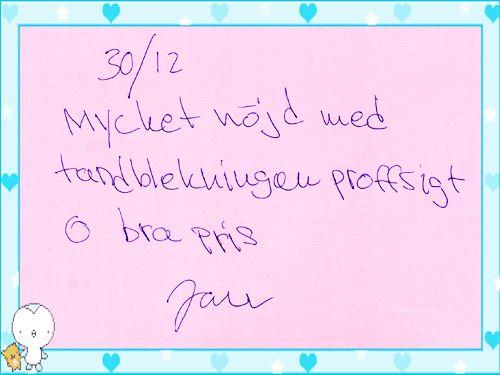 30/12
Mycket nöjd med
tandblekningen proffsigt
O bra pris